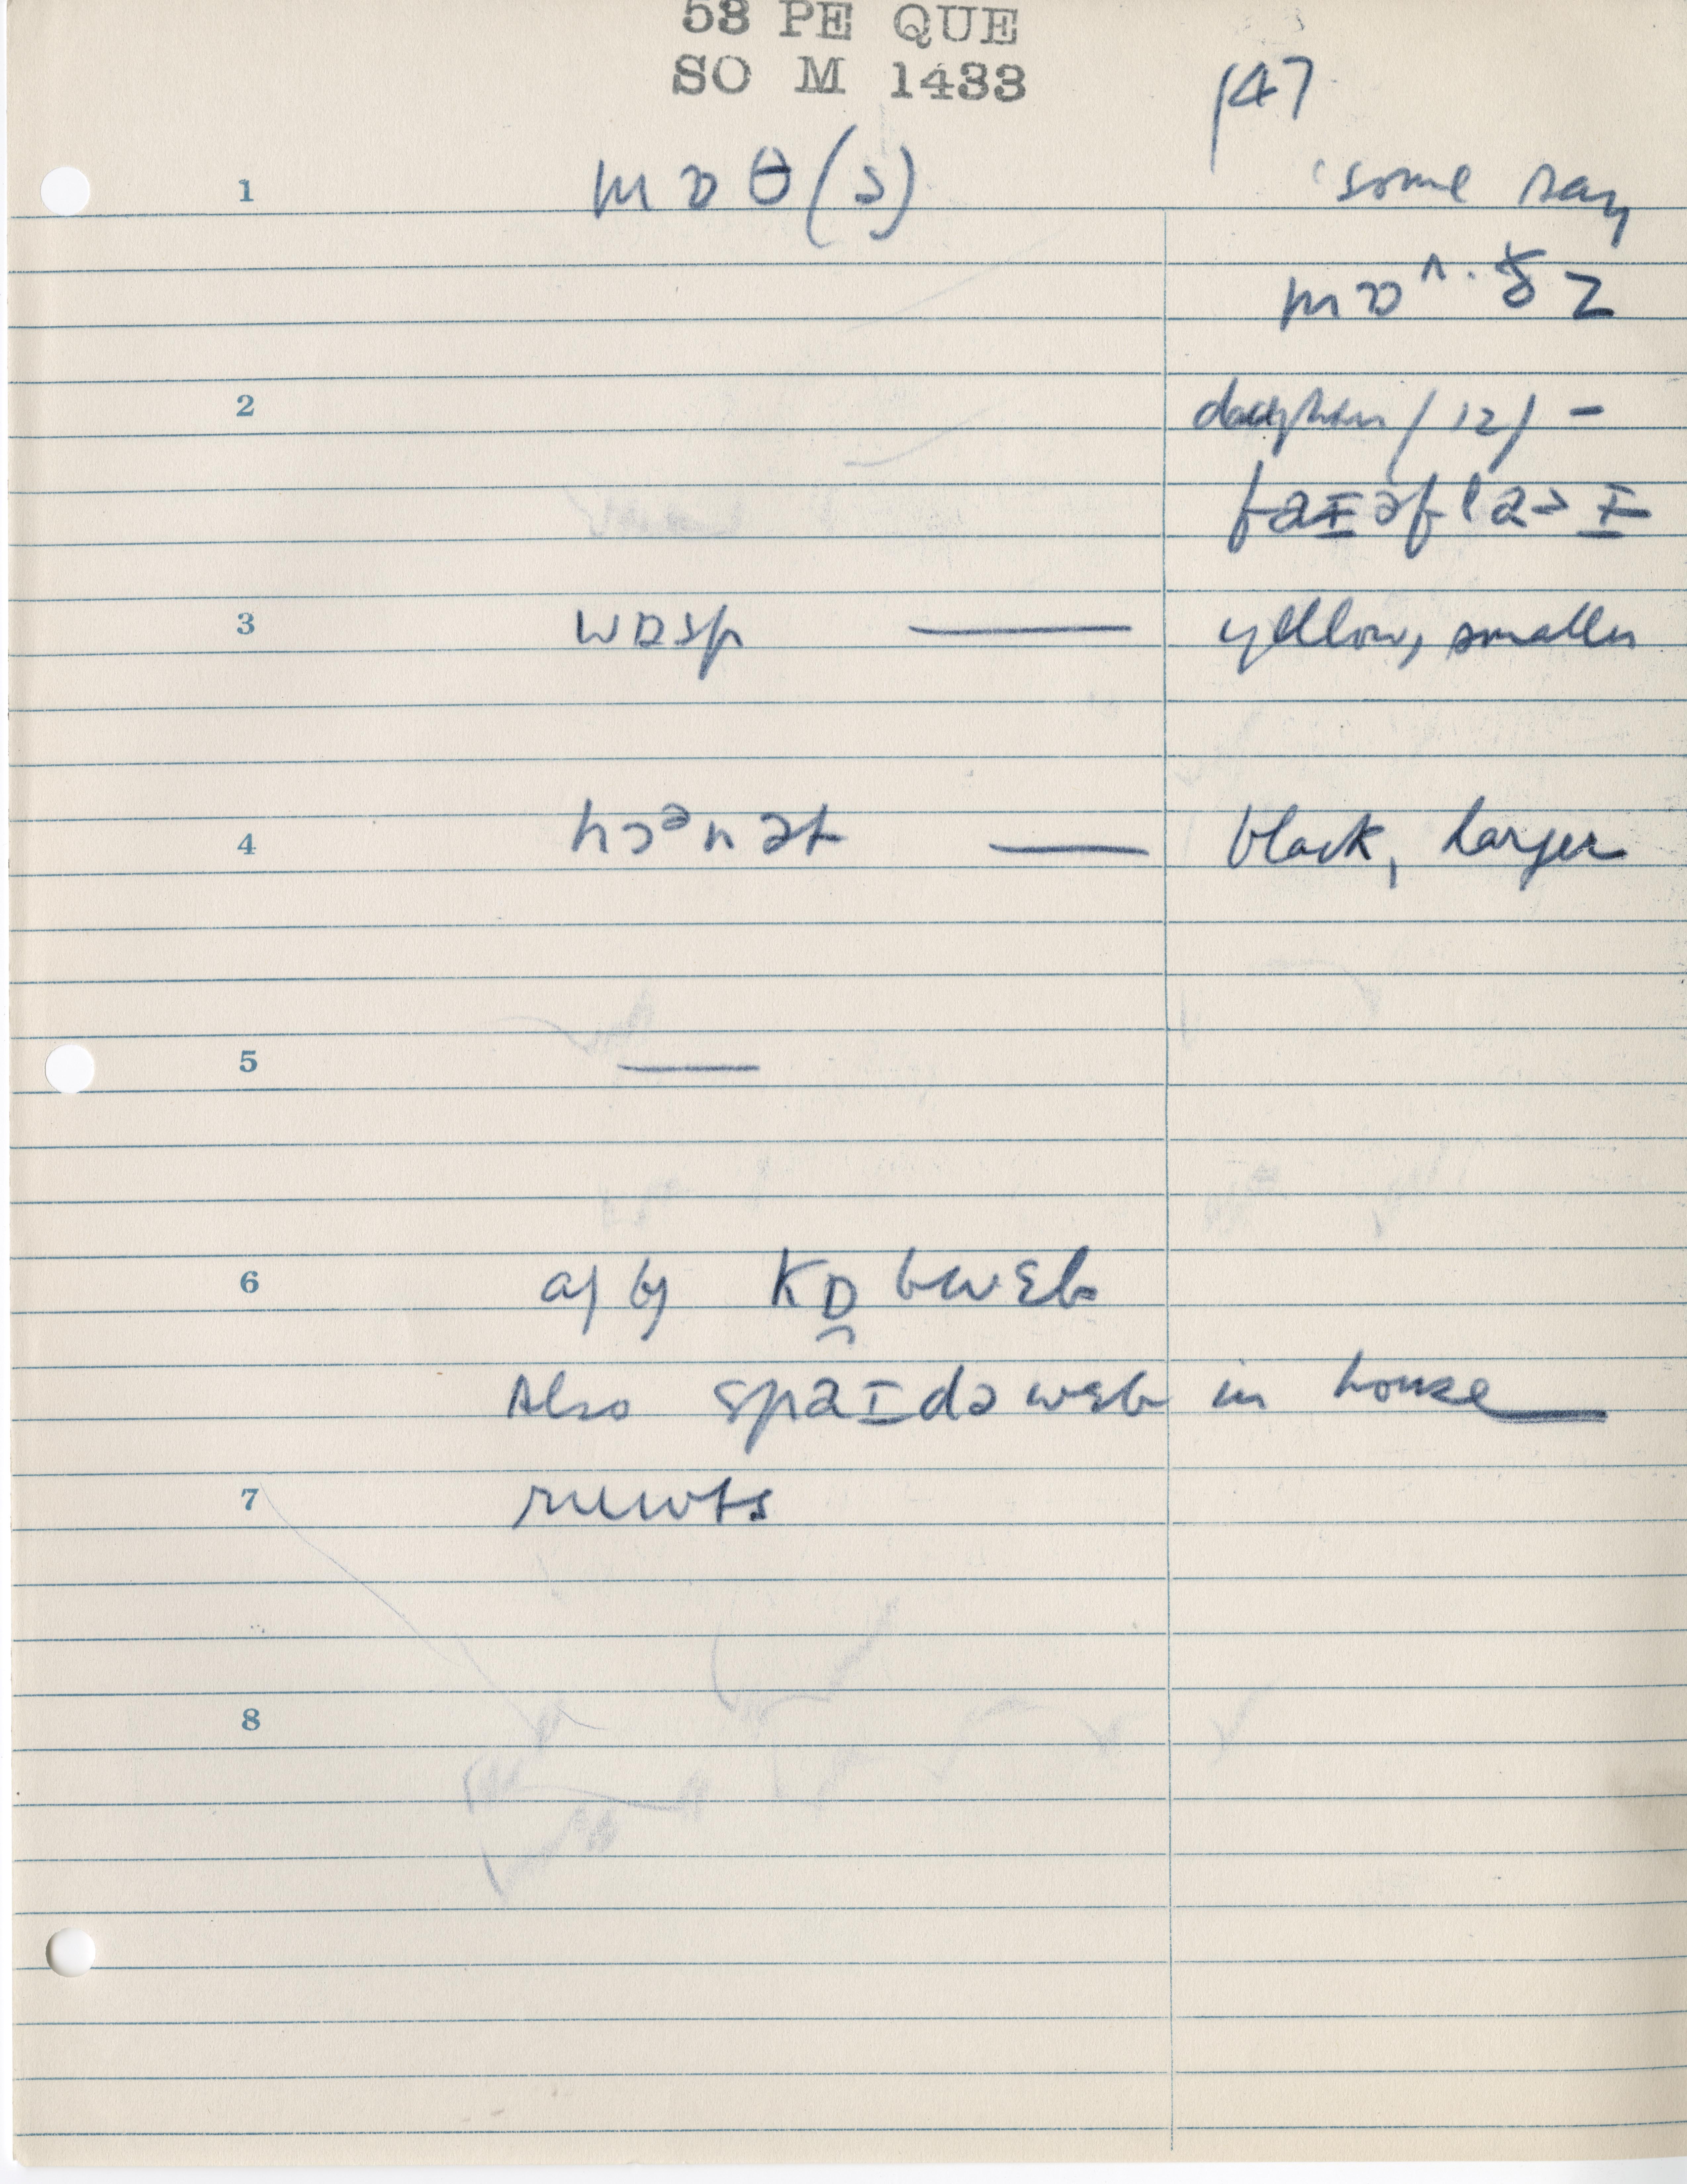 53 PE QUE
SO M 1433
147
1 mɒθ(s) some say
mɒ^·ðz
2 daughter (12) –
faɪəflaɪ
3 wɒsp — yellow, smaller
4 hɔᵊnət — black, larger
5 —
6 a/ b/ kɒbwɛb
Also spaɪdəwɛb in house
7 ruuwts
8